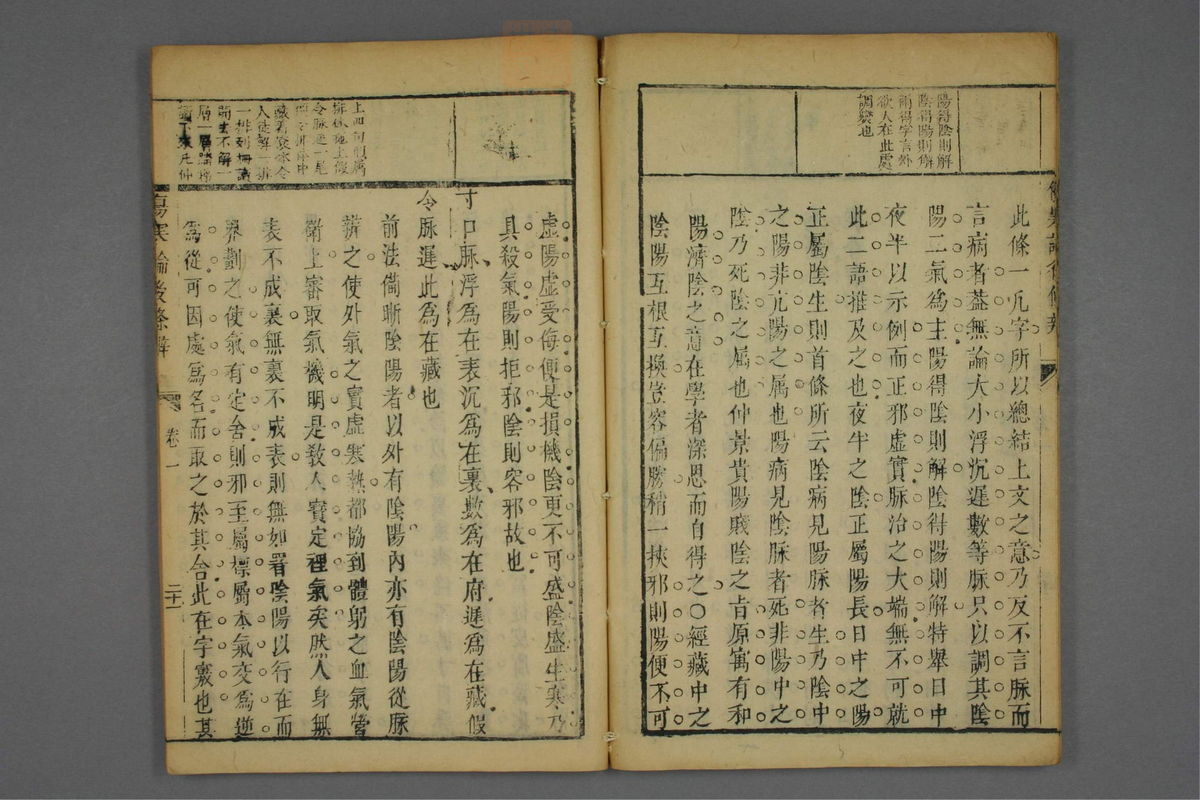 陽得陰則解
陰得陽則解
兩得字言外
欲人在此處
調變也
此條一凡字所以總結上文之意乃反不言脈而
言病者蓋無論大小浮沉遲數等脈只以調其陰
陽二氣為主陽得陰則解陰得陽則解特舉日中
夜半以示例而正邪虛實脈治之大端無不可就
此二語推及之也夜半之陰正屬陽長日中之陽
正屬陰生則首條所云陰病見陽脈者生乃陰中
之陽非亢陽之属也陽病見陰脈者死非陽中之
陰乃死陰之屬也仲景貴陽賤陰之旨原寓有和
陽濟陰之意在學者深思而自得之○經藏中之
陰陽互根互換豈容偏勝稍一挾邪則陽便不可
虛陽虛受侮便是損機陰更不可盛陰盛生寒乃
具殺氣陽則拒邪陰則容邪故也
寸口脈浮為在表沉為在裏數為在府遲為在藏假
令脈遲此為在藏也
前法衞晰陰陽者以外有陰陽內亦有陰陽從脈
辨之使外氣之實虛寒熱都協到體躬之血氣營
衞上審取氣機明是教人實定裡氣矣然人身無
表不成裏無裏不成表則無如署陰陽以行在而
界劃之使氣有定舍則邪至屬標屬本氣交為逆
為從可因處為名而取之於其合此在字竅也其
令脈遲一尾
傷寒論後條辨
卷一
二十一